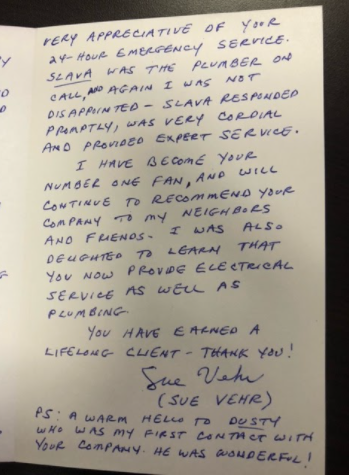 VERY APPRECIATIVE OF YOUR
24-HOUR EMERGENCY SERVICE.
SLAVA WAS THE PLUMBER ON
CALL, AND AGAIN I WAS NOT
DISAPPOINTED - SLAVA RESPONDED
PROMPTLY, WAS VERY CORDIAL
AND PROVIDED EXPERT SERVICE.
I HAVE BECOME YOUR
NUMBER ONE FAN, AND WILL
CONTINUE TO RECOMMEND YOUR
COMPANY TO MY NEIGHBORS
AND FRIENDS. I WAS ALSO
DELIGHTED TO LEARN THAT
YOU NOW PROVIDE ELECTRICAL
SERVICE AS WELL AS
PLUMBING.
YOU HAVE EARNED A
LIFELONG CLIENT - THANK YOU!
Sue Vehr
(SUE VEHR)
PS: A WARM HELLO TO DUSTY
WHO WAS MY FIRST CONTACT WITH
YOUR COMPANY. HE WAS WONDERFUL!